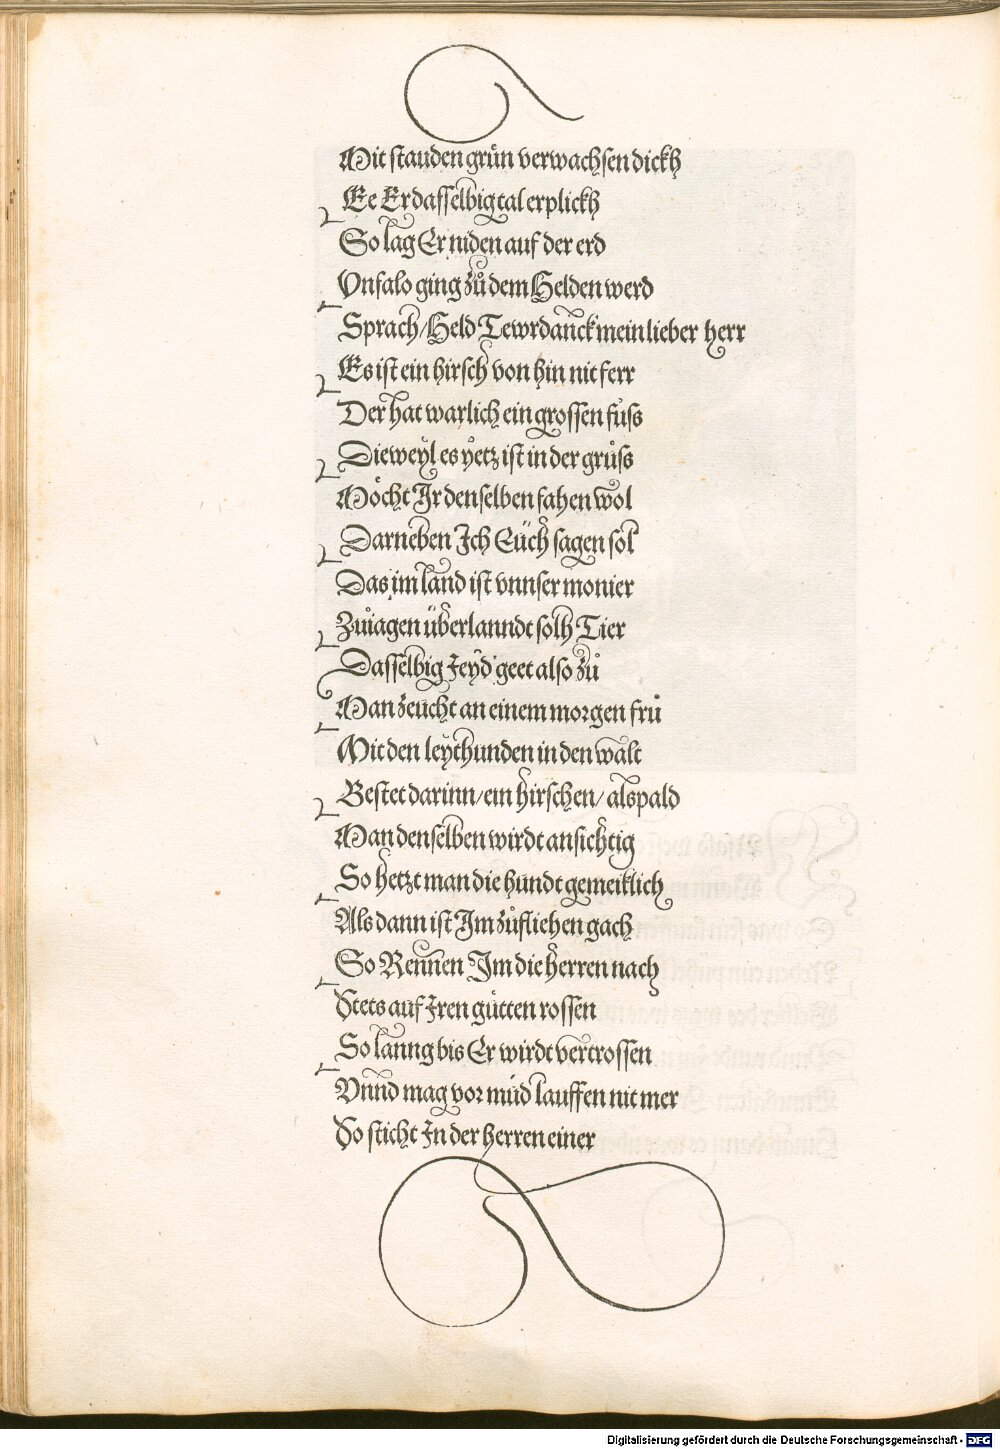 Mit stauden grün verwachsen dickh
Ee Er dasselbig tal erplickh
So lag Er niden auf der erd
Vnfalo ging zů dem Helden werd
Sprach/Held Tewrdannck mein lieber herr
Es ist ein hirsch von hin nit ferr
Der hat warlich ein grossen fůss
Dieweyl es yetz ist in der grůss
Möcht Jr denselben fahen wol
Darneben Jch Eüch sagen sol
Das im land ist vnnser monier
Zůiagen überlanndt solh Tier
Dasselbig Jeyd geet also zů
Man zeucht an einem morgen frů
Mit den leythunden in den walt
Bestet darinn/ein hirschen/alspald
Man denselben wirdt ansichtig
So hetzt man die hundt gemeiklich
Als dann ist Jm zůfliehen gach
So Rennen Jm die herren nach
Stets auf Jren gůtten rossen
So lanng bis Er wirdt vertrossen
Vnnd mag vor můd lauffen nit mer
So sticht Jn der herren einer
Digitalisierung gefördert durch die Deutsche Forschungsgemeinschaft - DFG